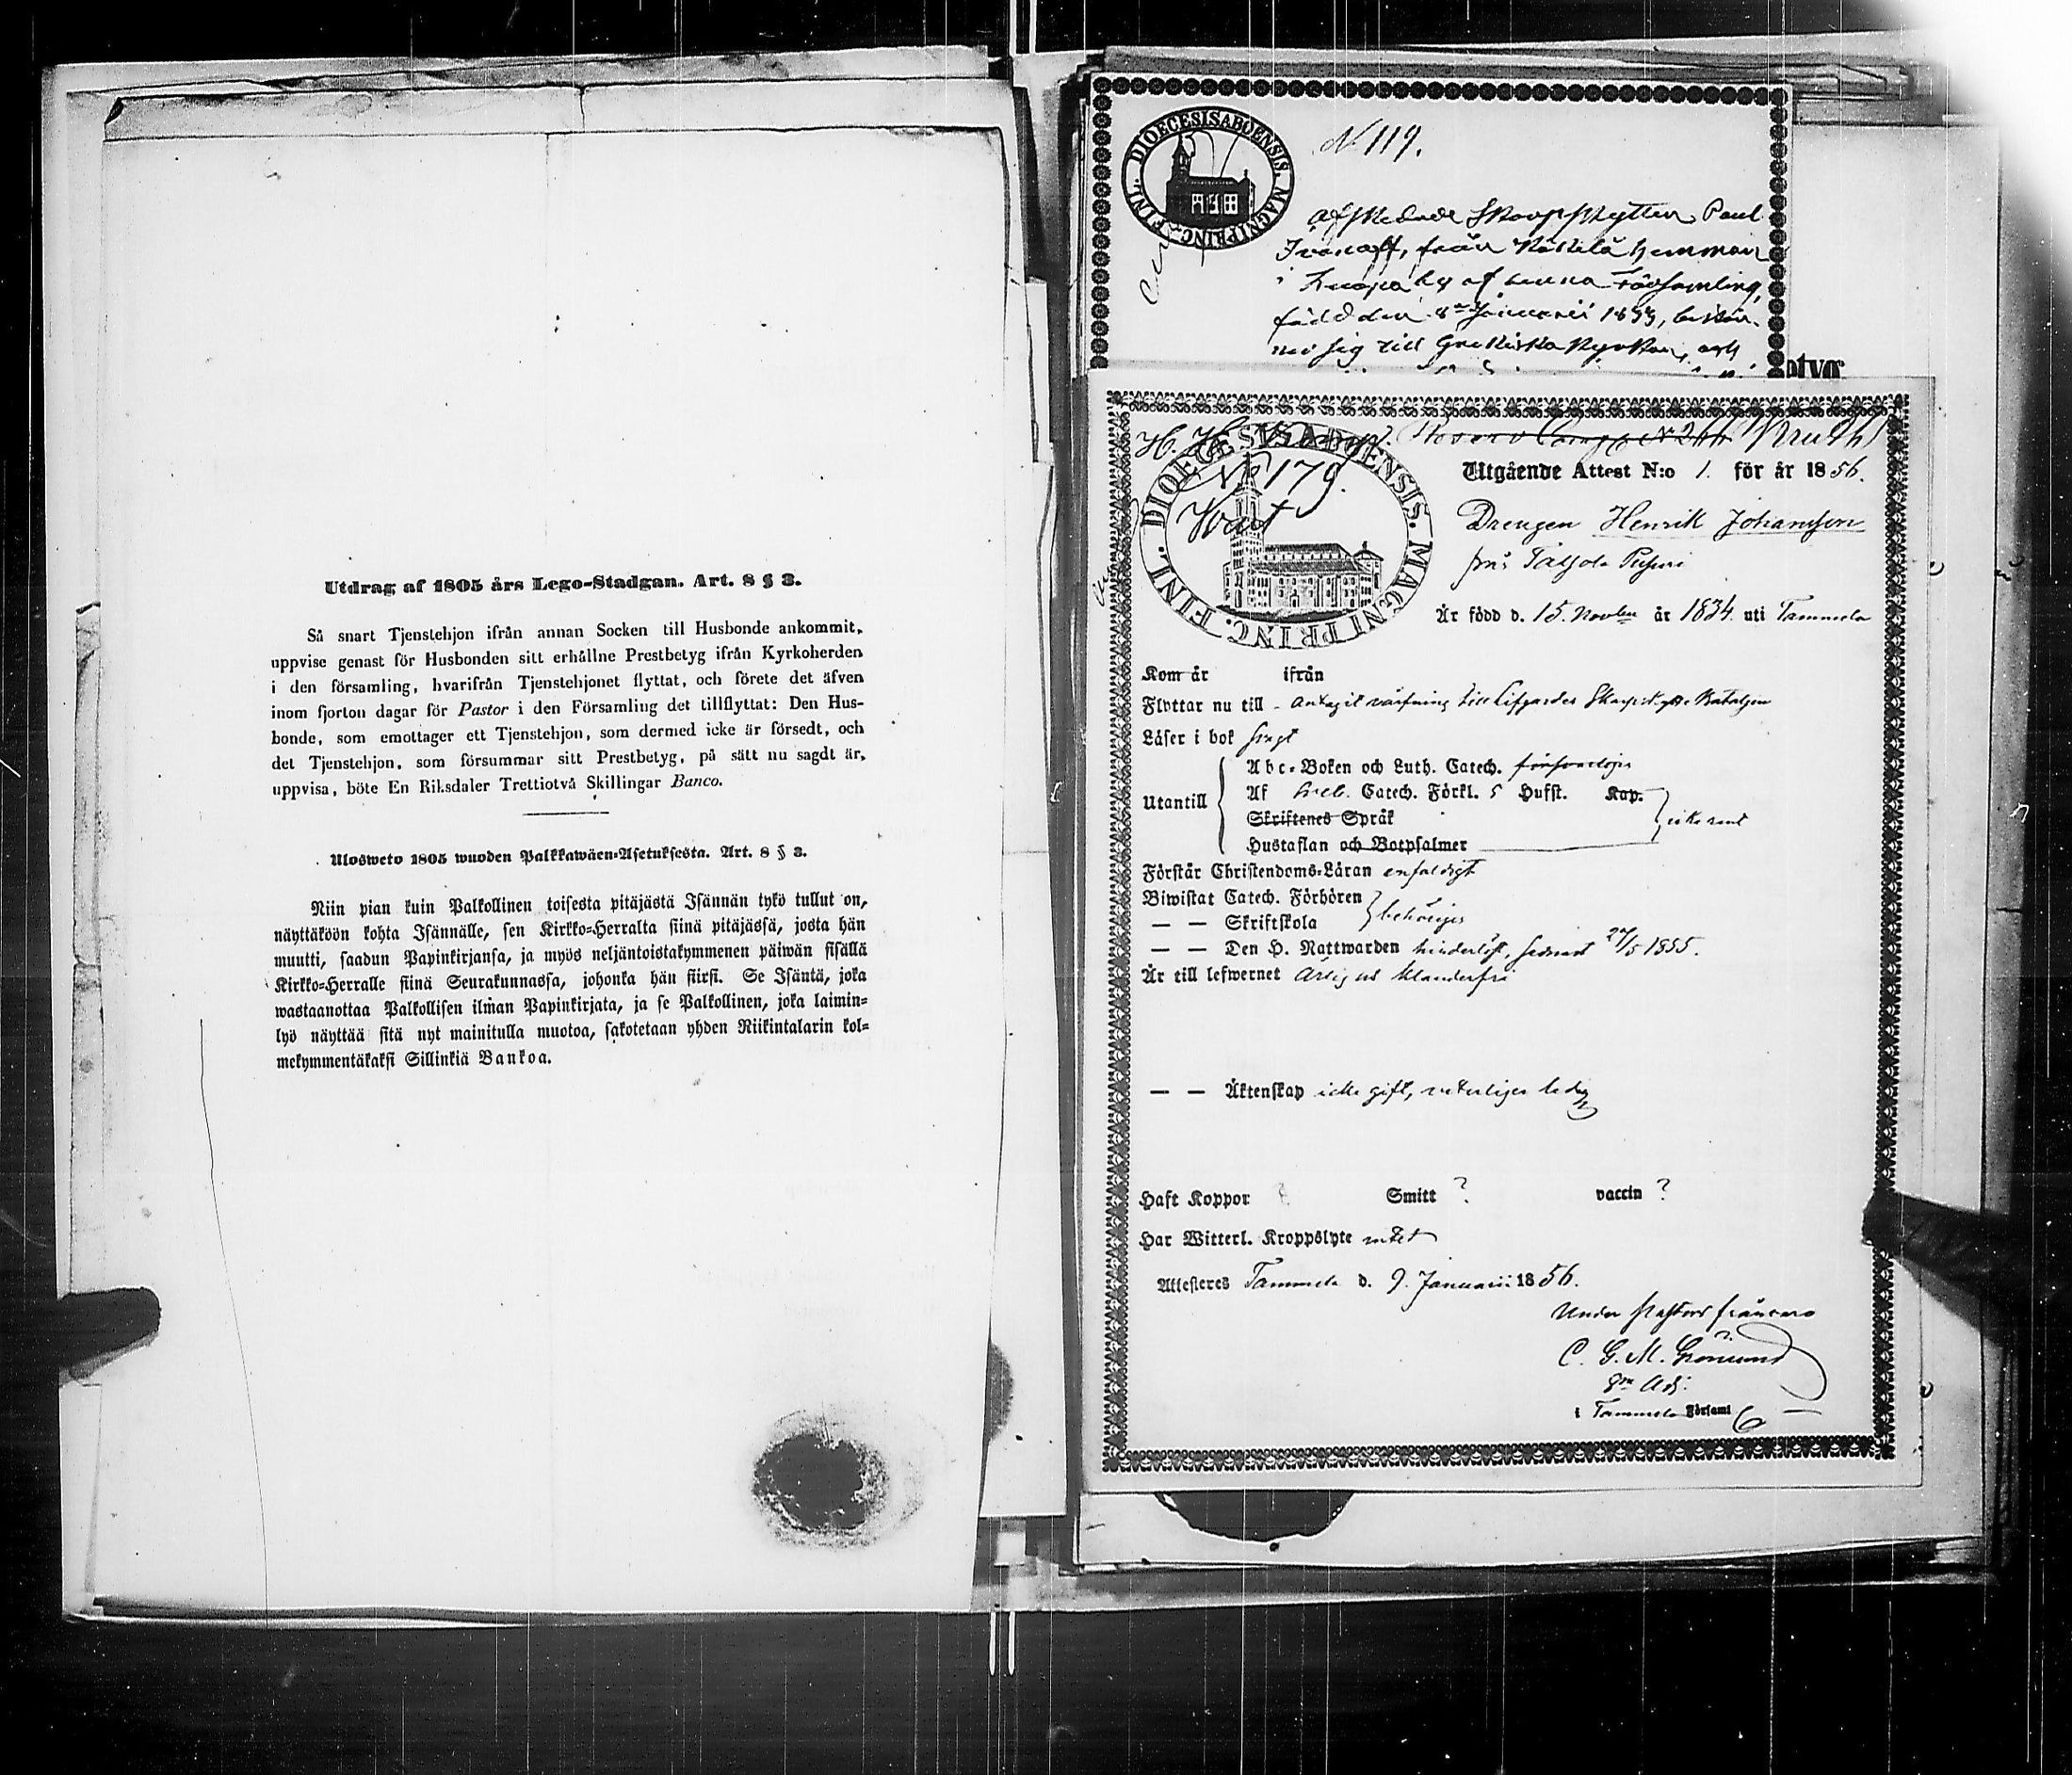 Utdrag af 1805 års Lego-Stadgan. Art. 8 § 3.
Så snart Tjenstehjon ifrån annan Socken till Husbonde ankommit,
uppvise genast för Husbonden sitt erhållne Prestbetyg ifrån Kyrkoherden
i den församling, hvarifrån Tjenstehjonet flyttat, och förete det äfven
inom fjorton dagar för Pastor i den Församling det tillflyttat: Den Hus-
bonde, som emottager ett Tjenstehjon, som dermed icke är försedt, och
det Tjenstehjon, som försummar sitt Prestbetyg, på sätt nu sagdt är,
uppvisa, böte En Riksdaler Trettiotvå Skillingar Banco.
Ulosweto 1805 wuoden Palkkawäen-Asetuksesta. Art. 8 § 3.
Niin pian kuin Palkollinen toisesta pitäjästä Isännän tykö tullut on,
näyttäköön kohta Isännälle, sen Kirkko-Herralta siinä pitäjässä, josta hän
muutti, saadun Papinkirjansa, ja myös neljäntoistakymmenen päiwän sisällä
Kirkko-Herralle siinä Seurakunnassa, johonka hän siirsi. Se Isäntä, joka
wastaanottaa Palkollisen ilman Papinkirjata, ja se Palkollinen, joka laimin-
lyö näyttää sitä nyt mainitulla muotoa, sakotetaan yhden Riikintalarin kol-
mekymmentäkaksi Sillinkiä Bankoa.
DIOECESIS ABOENSIS. MAGNI PRINC. FINL.
N 119.
Afskedade Skarpskytten Paul
Ivanoff, från hemman
i by af denna Församling,
född den 8de Januarii 1833, bekän-
ner sig till Grekiska Kyrkan, och
DIOECESIS ABOENSIS. MAGNI PRINC. FINL.
No 179.
Utgående Attest N:o 1. för år 1856.
Drengen Henrik Johansson
från
Är född d. 15. Novber år 1834. uti Tammela
Kom år ifrån
Flyttar nu till - antagit värfning till Lifgardes Skarpskytte Bataljon
Läser i bok svagt
Utantill
Abc-Boken och Luth. Catech. försvarligen
Af Catech. Förkl. 5 Hufst. Kap.
Skriftenes Språk
Hustaflan och Botpsalmer
icke rent
Förstår Christendoms-Läran enfaldigt
Biwistat Catech. Förhören
— — Skriftskola
behörigen
— — Den H. Nattwarden hinderlöst, sednast 27/5 1855.
Är till lefwernet ärlig och klanderfri
— — Äktenskap icke gift, veterligen ledig
Haft Koppor ? Smitt ? vaccin ?
Har Witterl. Kroppslyte intet
Attesteres Tammela d. 9. Januarii 1856.
Under Pastors frånvaro
C. G. M. Grönlund
Adj.
i Tammela Församl